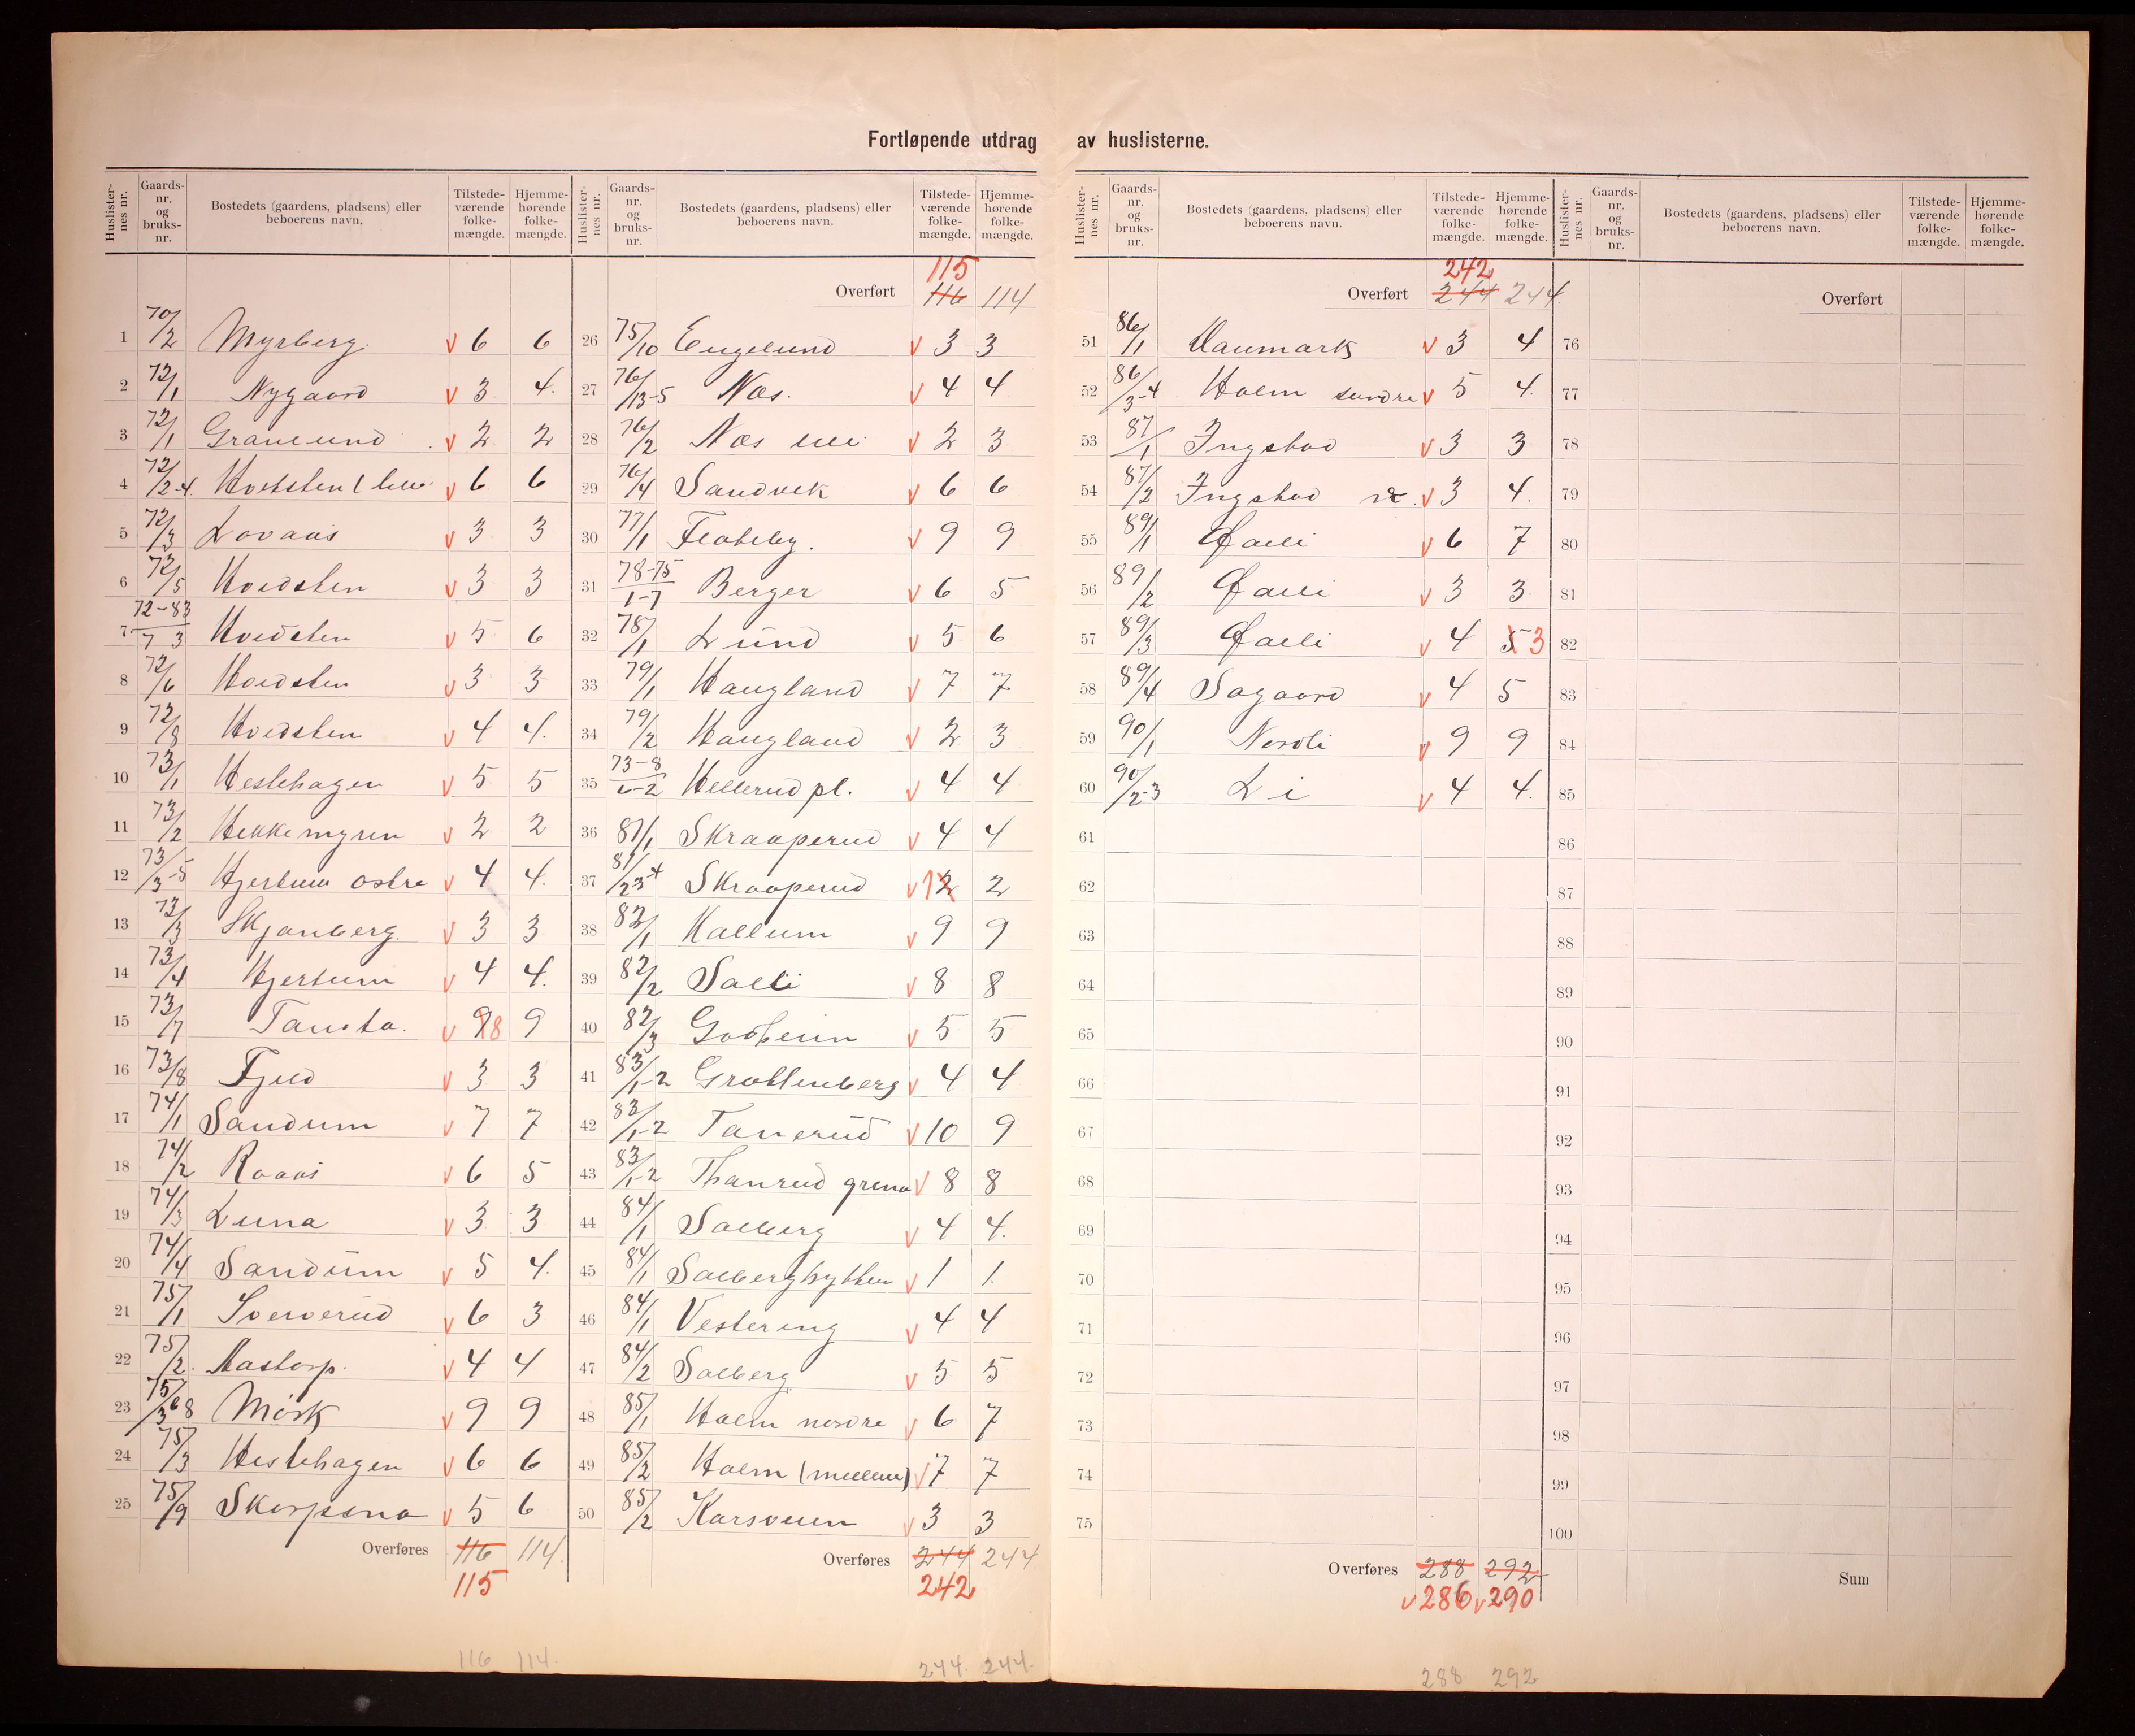 Fortløpende utdrag av huslisterne.
Huslister-nes nr. Gaards-nr. og bruks-nr. Bostedets (gaardens, pladsens) eller beboerens navn. Tilstede-værende folke-mængde. Hjemme-hørende folke-mængde.
1 70/2 Myrberg. v 6 6
2 72/1 Nygaard v 3 4.
3 72/1 Granlund v 2 2
4 72/2-4. v 6 6
5 72/3 Lovaas v 3 3
6 72/5 Hvidsten v 3 3
7 72-83 7 3 Hvidsten v 5 6
8 72/6 Hvidsten v 3 3
9 72/8 Hvidsten v 4 4.
10 73/1 Hestehagen v 5 5
11 73/2 Hekkemyren v 2 2
12 73/3-5 Hjertum østre v 4 4.
13 73/3 Skjanberg. v 3 3
14 73/4 Hjertum v 4 4.
15 73/7 v 9 8 9
16 73/8 Fjeld v 3 3
17 74/1 Sandum v 7 7
18 74/2 Raaas v 6 5
19 74/3 Luna v 3 3
20 74/4 Sandum v 5 4.
21 75/1 v 6 3
22 75/2. Aastorp. v 4 4
23 75/3 6 8 Mörk v 9 9
24 75/3 Hestehagen v 6 6
25 75/9 Skorpsna v 5 6
Overføres 116 114.
115
116 114.
Huslister-nes nr. Gaards-nr. og bruks-nr. Bostedets (gaardens, pladsens) eller beboerens navn. Tilstede-værende folke-mængde. Hjemme-hørende folke-mængde.
115
Overført 116 114
26 75/10 Engelund v 3 3
27 76/13-5 Næs. v 4 4
28 76/2 Næs v 2 3
29 76/4 Sandvik v 6 6
30 77/1 Flateby. v 9 9
31 78-75 1-7 Berger v 6 5
32 78/1 Lund v 5 6
33 79/1 Haugland v 7 7
34 79/2 Haugland v 2 3
35 73-8 Hellerud pl. v 4 4
36 81/1 Skraaperud v 4 4
37 81/2 3 4 Skraaperud v 1 2 2
38 82/1 Kallum v 9 9
39 82/2 Solli v 8 8
40 82/3 Godheim v 5 5
41 83/1-2 Grøttenberg v 4 4
42 83/1-2 Tanerud v 10 9
43 83/1-2 Thanrud grena v 8 8
44 84/1 Solberg v 4 4.
45 84/1 Solberghytten v 1 1.
46 84/1 Vestereng v 4 4
47 84/2 Solberg v 5 5
48 85/1 Holm nordre v 6 7
49 85/2 Holm (mellem) v 7 7
50 85/2 v 3 3
Overføres 244 244
242
244. 244.
Huslister-nes nr. Gaards-nr. og bruks-nr. Bostedets (gaardens, pladsens) eller beboerens navn. Tilstede-værende folke-mængde. Hjemme-hørende folke-mængde.
242
Overført 244 244
51 86/1 Danmark v 3 4
52 86/3-4 Holm søndre v 5 4.
53 87/1 Ingstad v 3 3
54 87/2 Ingstad v 3 4.
55 89/1 v 6 7
56 89/2 v 3 3
57 89/3 v 4 5 3
58 89/4 Sagaard v 4 5
59 90/1 Nordli v 9 9
60 90/2-3 Li v 4 4.
61
62
63
64
65
66
67
68
69
70
71
72
73
74
75
Overføres 288 292
v 286 v 290
288 292
Huslister-nes nr. Gaards-nr. og bruks-nr. Bostedets (gaardens, pladsens) eller beboerens navn. Tilstede-værende folke-mængde. Hjemme-hørende folke-mængde.
Overført
76
77
78
79
80
81
82
83
84
85
86
87
88
89
90
91
92
93
94
95
96
97
98
99
100
Sum